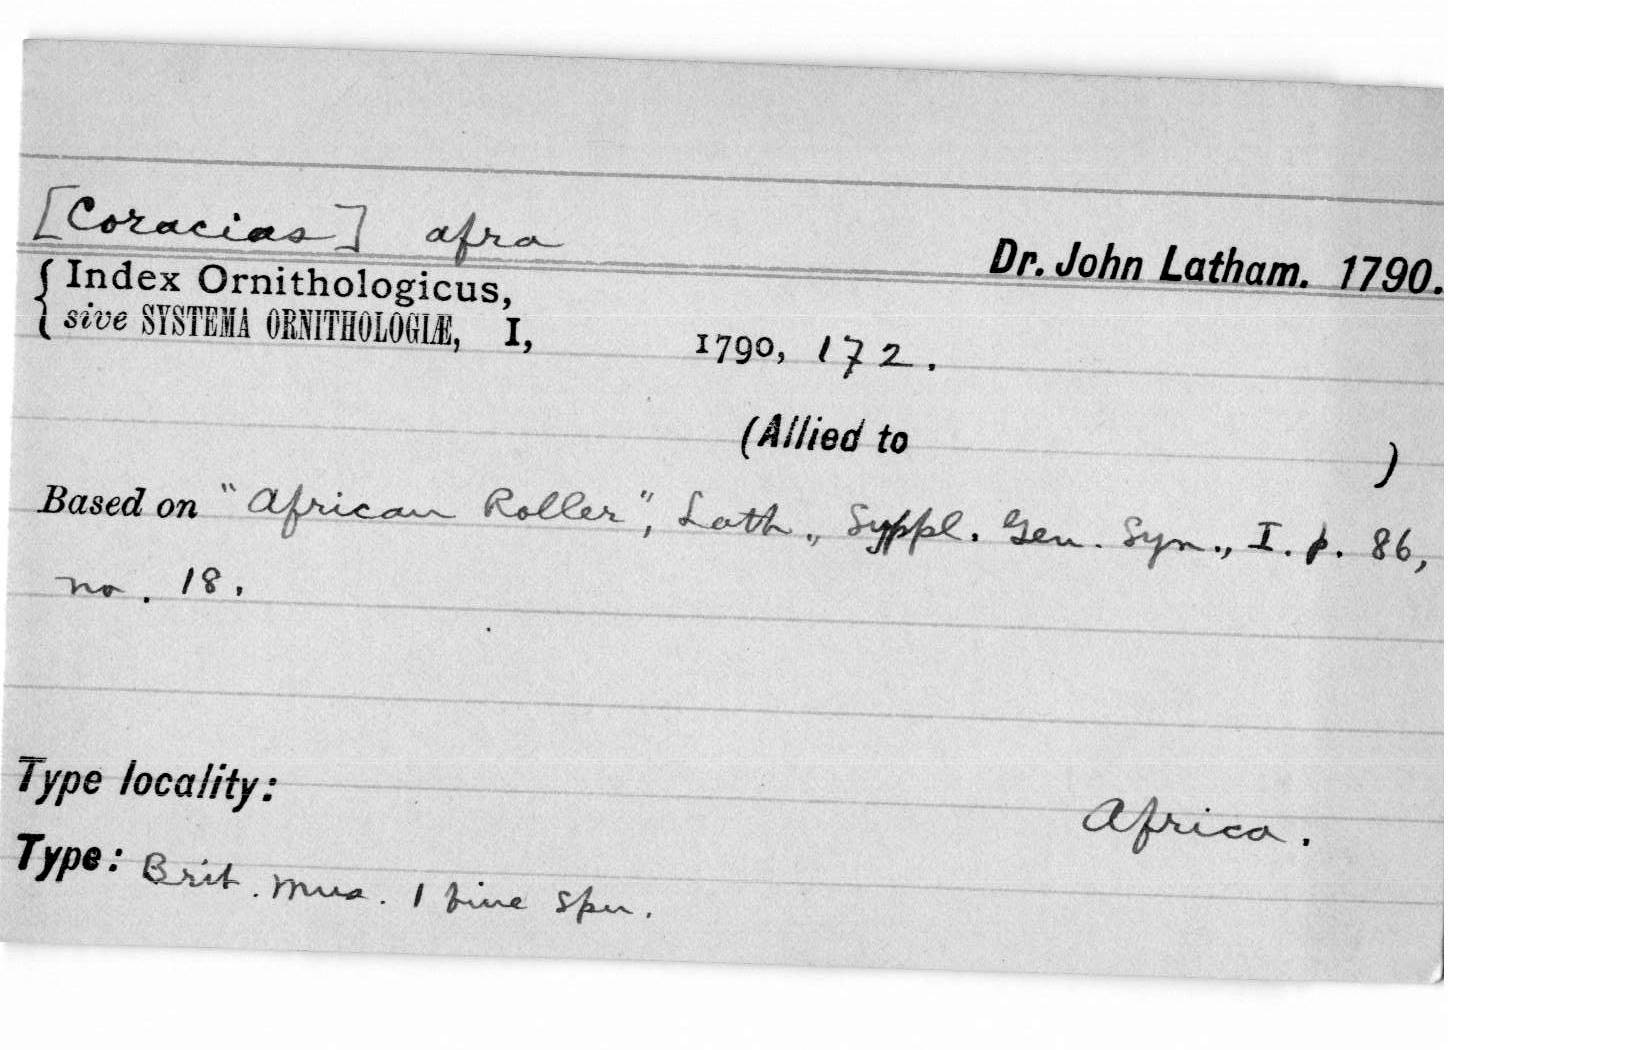 [Coracias] afra
Dr. John Latham. 1790.
{ Index Ornithologicus,
sive SYSTEMA ORNITHOLOGIÆ, I, 1790, 172.
(Allied to )
Based on "African Roller", Lath., Suppl. Gen. Syn., I. p. 86,
no. 18.
Type locality: Africa.
Type: Brit. Mus. 1 fine spn.